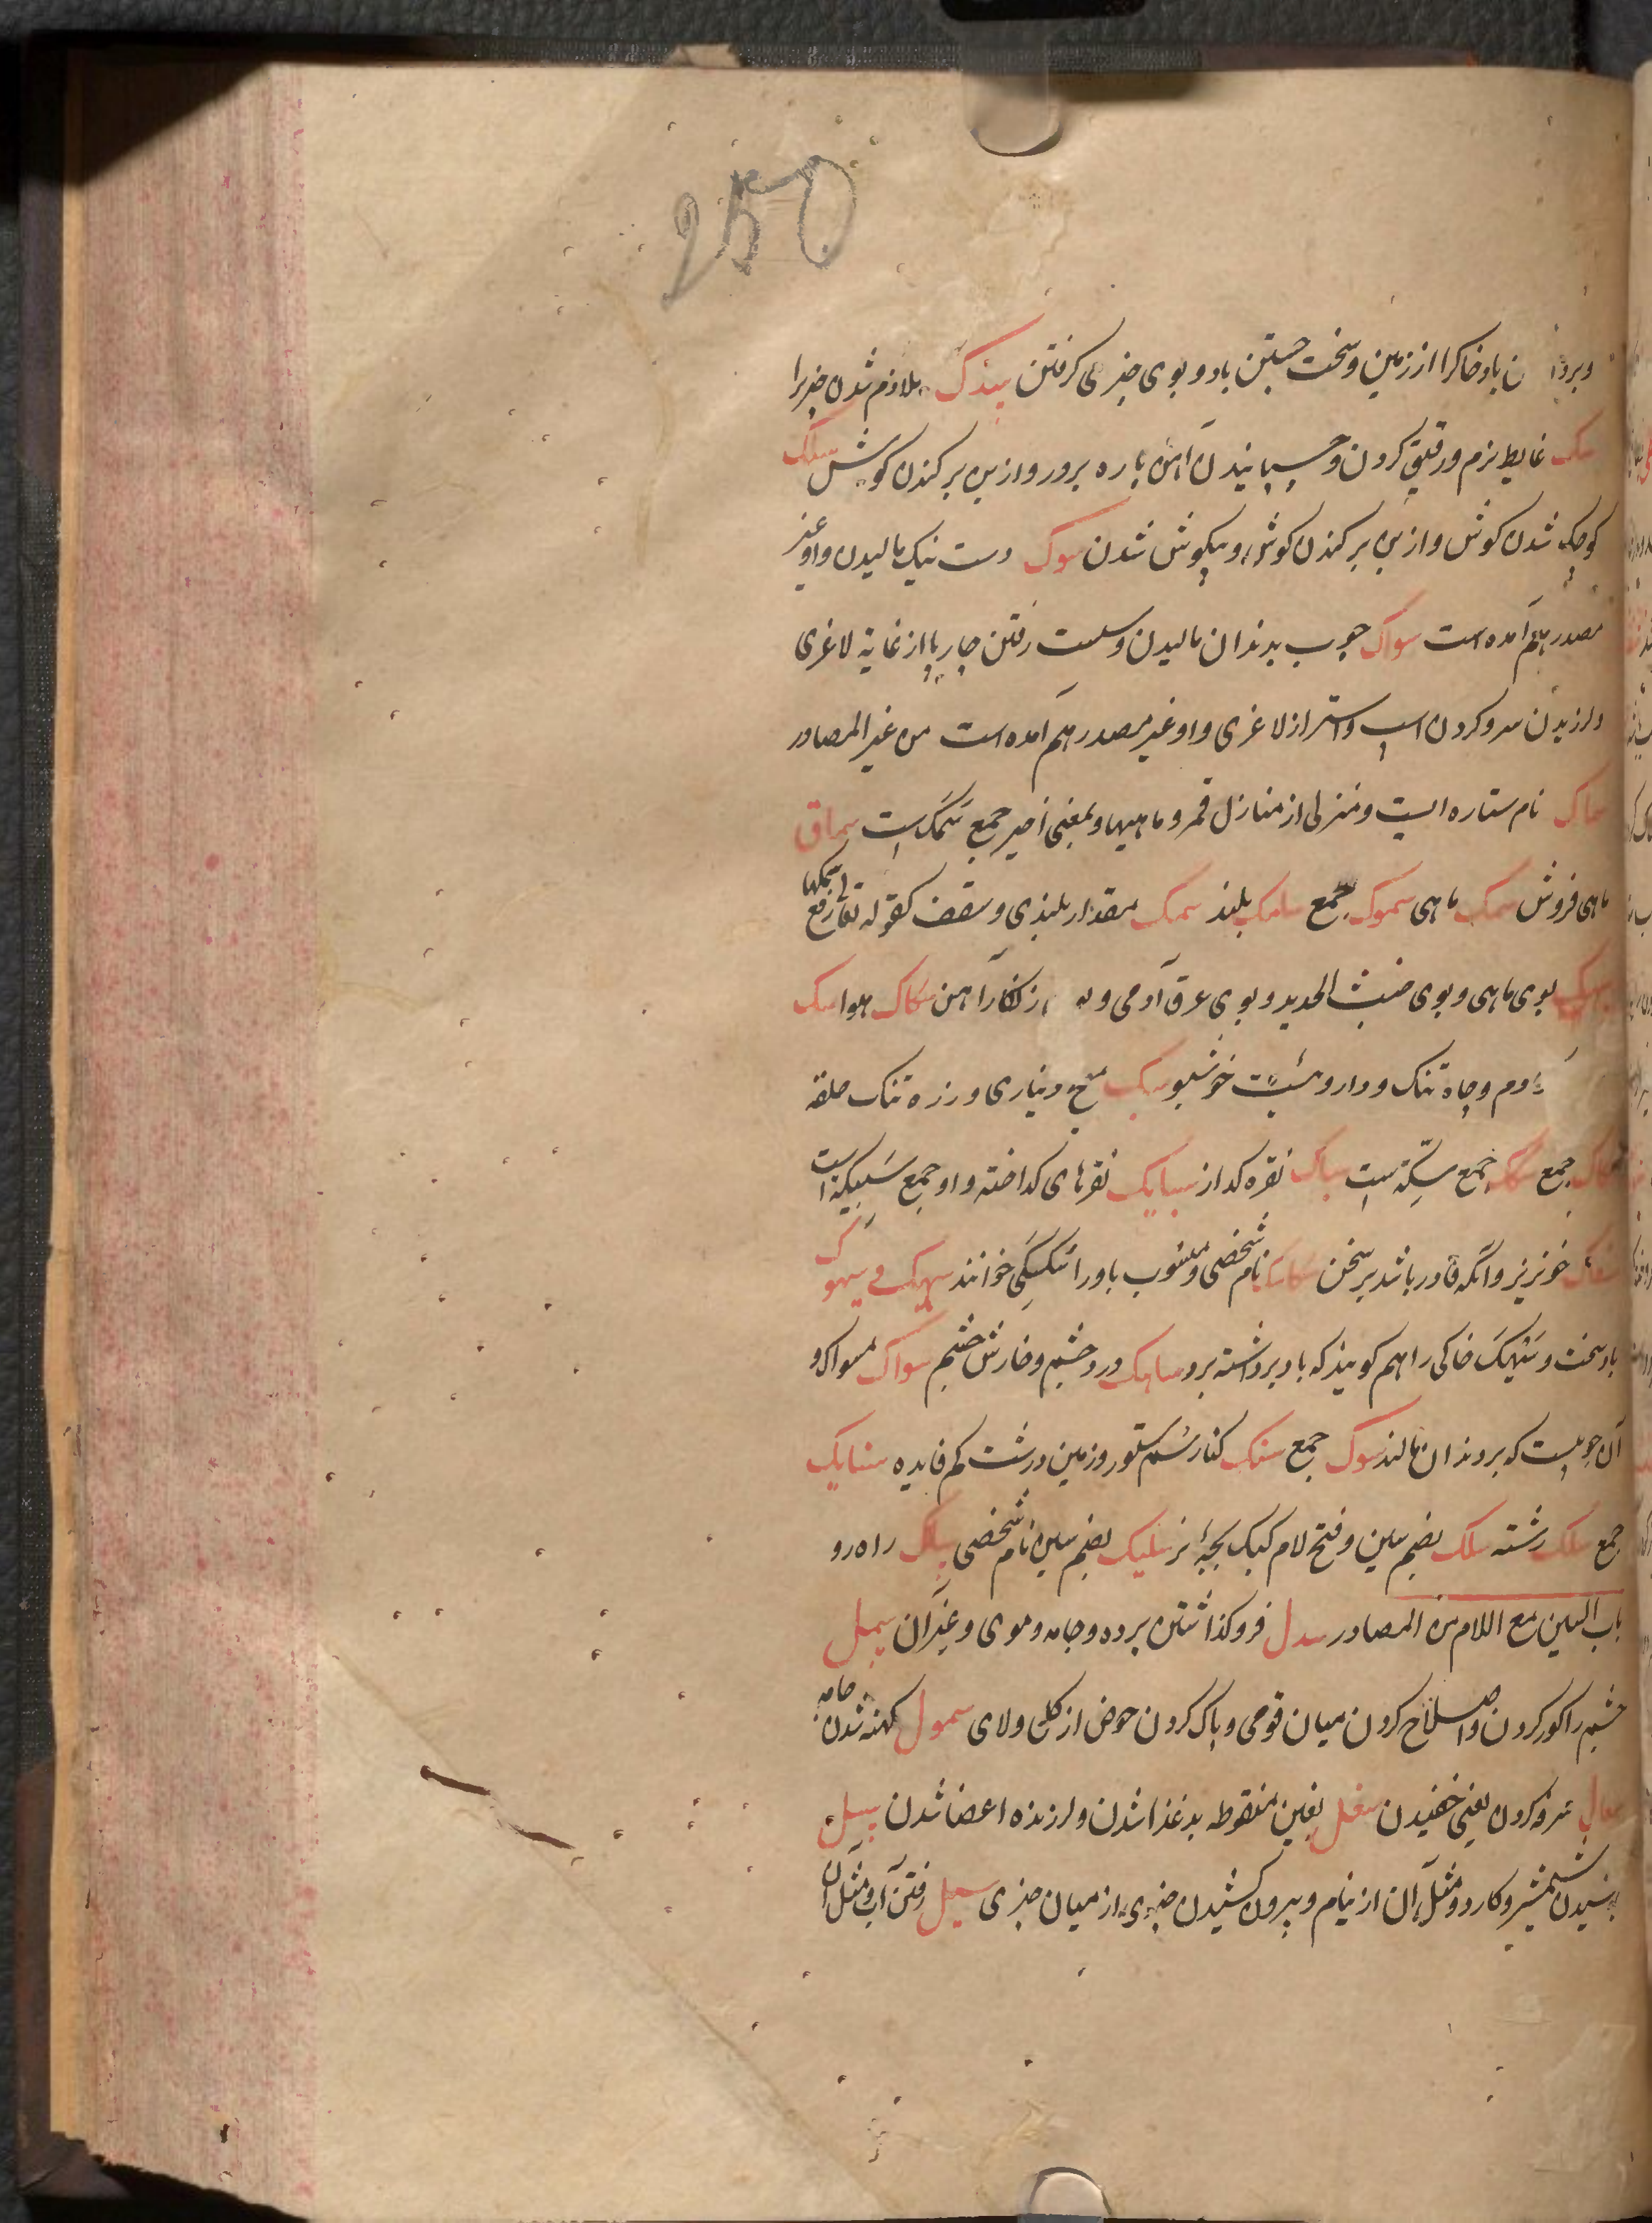 250
باد خاکرا از زمین و سخت جستن باد و بوی چیزی کرفتن سدک ملازم شدن چیزیرا
سک غایط نرم و رقیق کردن و چسپانیدن آهن پاره برور و از بن برکندن کوش سکک
کوچک شدن کوش و از بن برکندن کوش و بیکوش شدن سوک دست نیک مالیدن و او غیر
مصدر هم آمده است سواک چوب بدندان مالیدن و سست رفتن چارپا از غایة لاغری
و لرزیدن سرو کردن اسپ و استر از لاغری و او غیر مصدر هم آمده است من غیر المصادر
سماک نام ستاره ایست و منزلی از منازل قمر و ماهیها و بمعنی اخیر جمع سَمَک است سماق
ماهی فروش سمک ماهی سموک جمع سامک بلند سمک مقدار بلندی و سقف کقوله تعا رفع سمکها
سهک بوی ماهی و بوی خبث الحدید و بوی عرق آدمی و زنکار آهن سکاک هوا سک
و چاه تنک و داروئیست خوشبو سک میخ دیناری و زره تنک حلقه
سکاک جمع سکک جمع سِکّه است سباک نقره کداز سبایک نقرهای کداخته و او جمع سَبیکه است
سفاک خونریز و آنکه قادر باشد برسخن سکاسک نام شخصی و منسوب باورا سَکسَکی خوانند سهک و سیهوک
باد سخت و سَیهَک خاکی را هم کویند که باد برداشته برد ساهک درد چشم و خارش چشم سواک مسواک و
آن چوبیست که بر دندان مالند سوک جمع سنبک کنار سُم ستور و زمین درشت کم فایده سنابک
جمع سلک رشته سلک بضم سین و فتح لام کبک بچۀ نر سلیک بضم سین نام شخصی سالک راه رو
باب السین مع اللام من المصادر سدل فرو کذاشتن پرده و جامه و موی و غیر آن سمل
چشم را کور کردن و اصلاح کردن میان قومی و پاک کردن حوض از کل و لای سمول کهنه شدن جامه
سعال سرفه کردن یعنی خفیدن سغل بغین منقوطه بدغذا شدن و لرزنده اعضا شدن سل
شمشیر و کارد و مثل آن از نیام و بیرون کشیدن چیزی از میان چیزی سیل رفتن آب و مثل آن